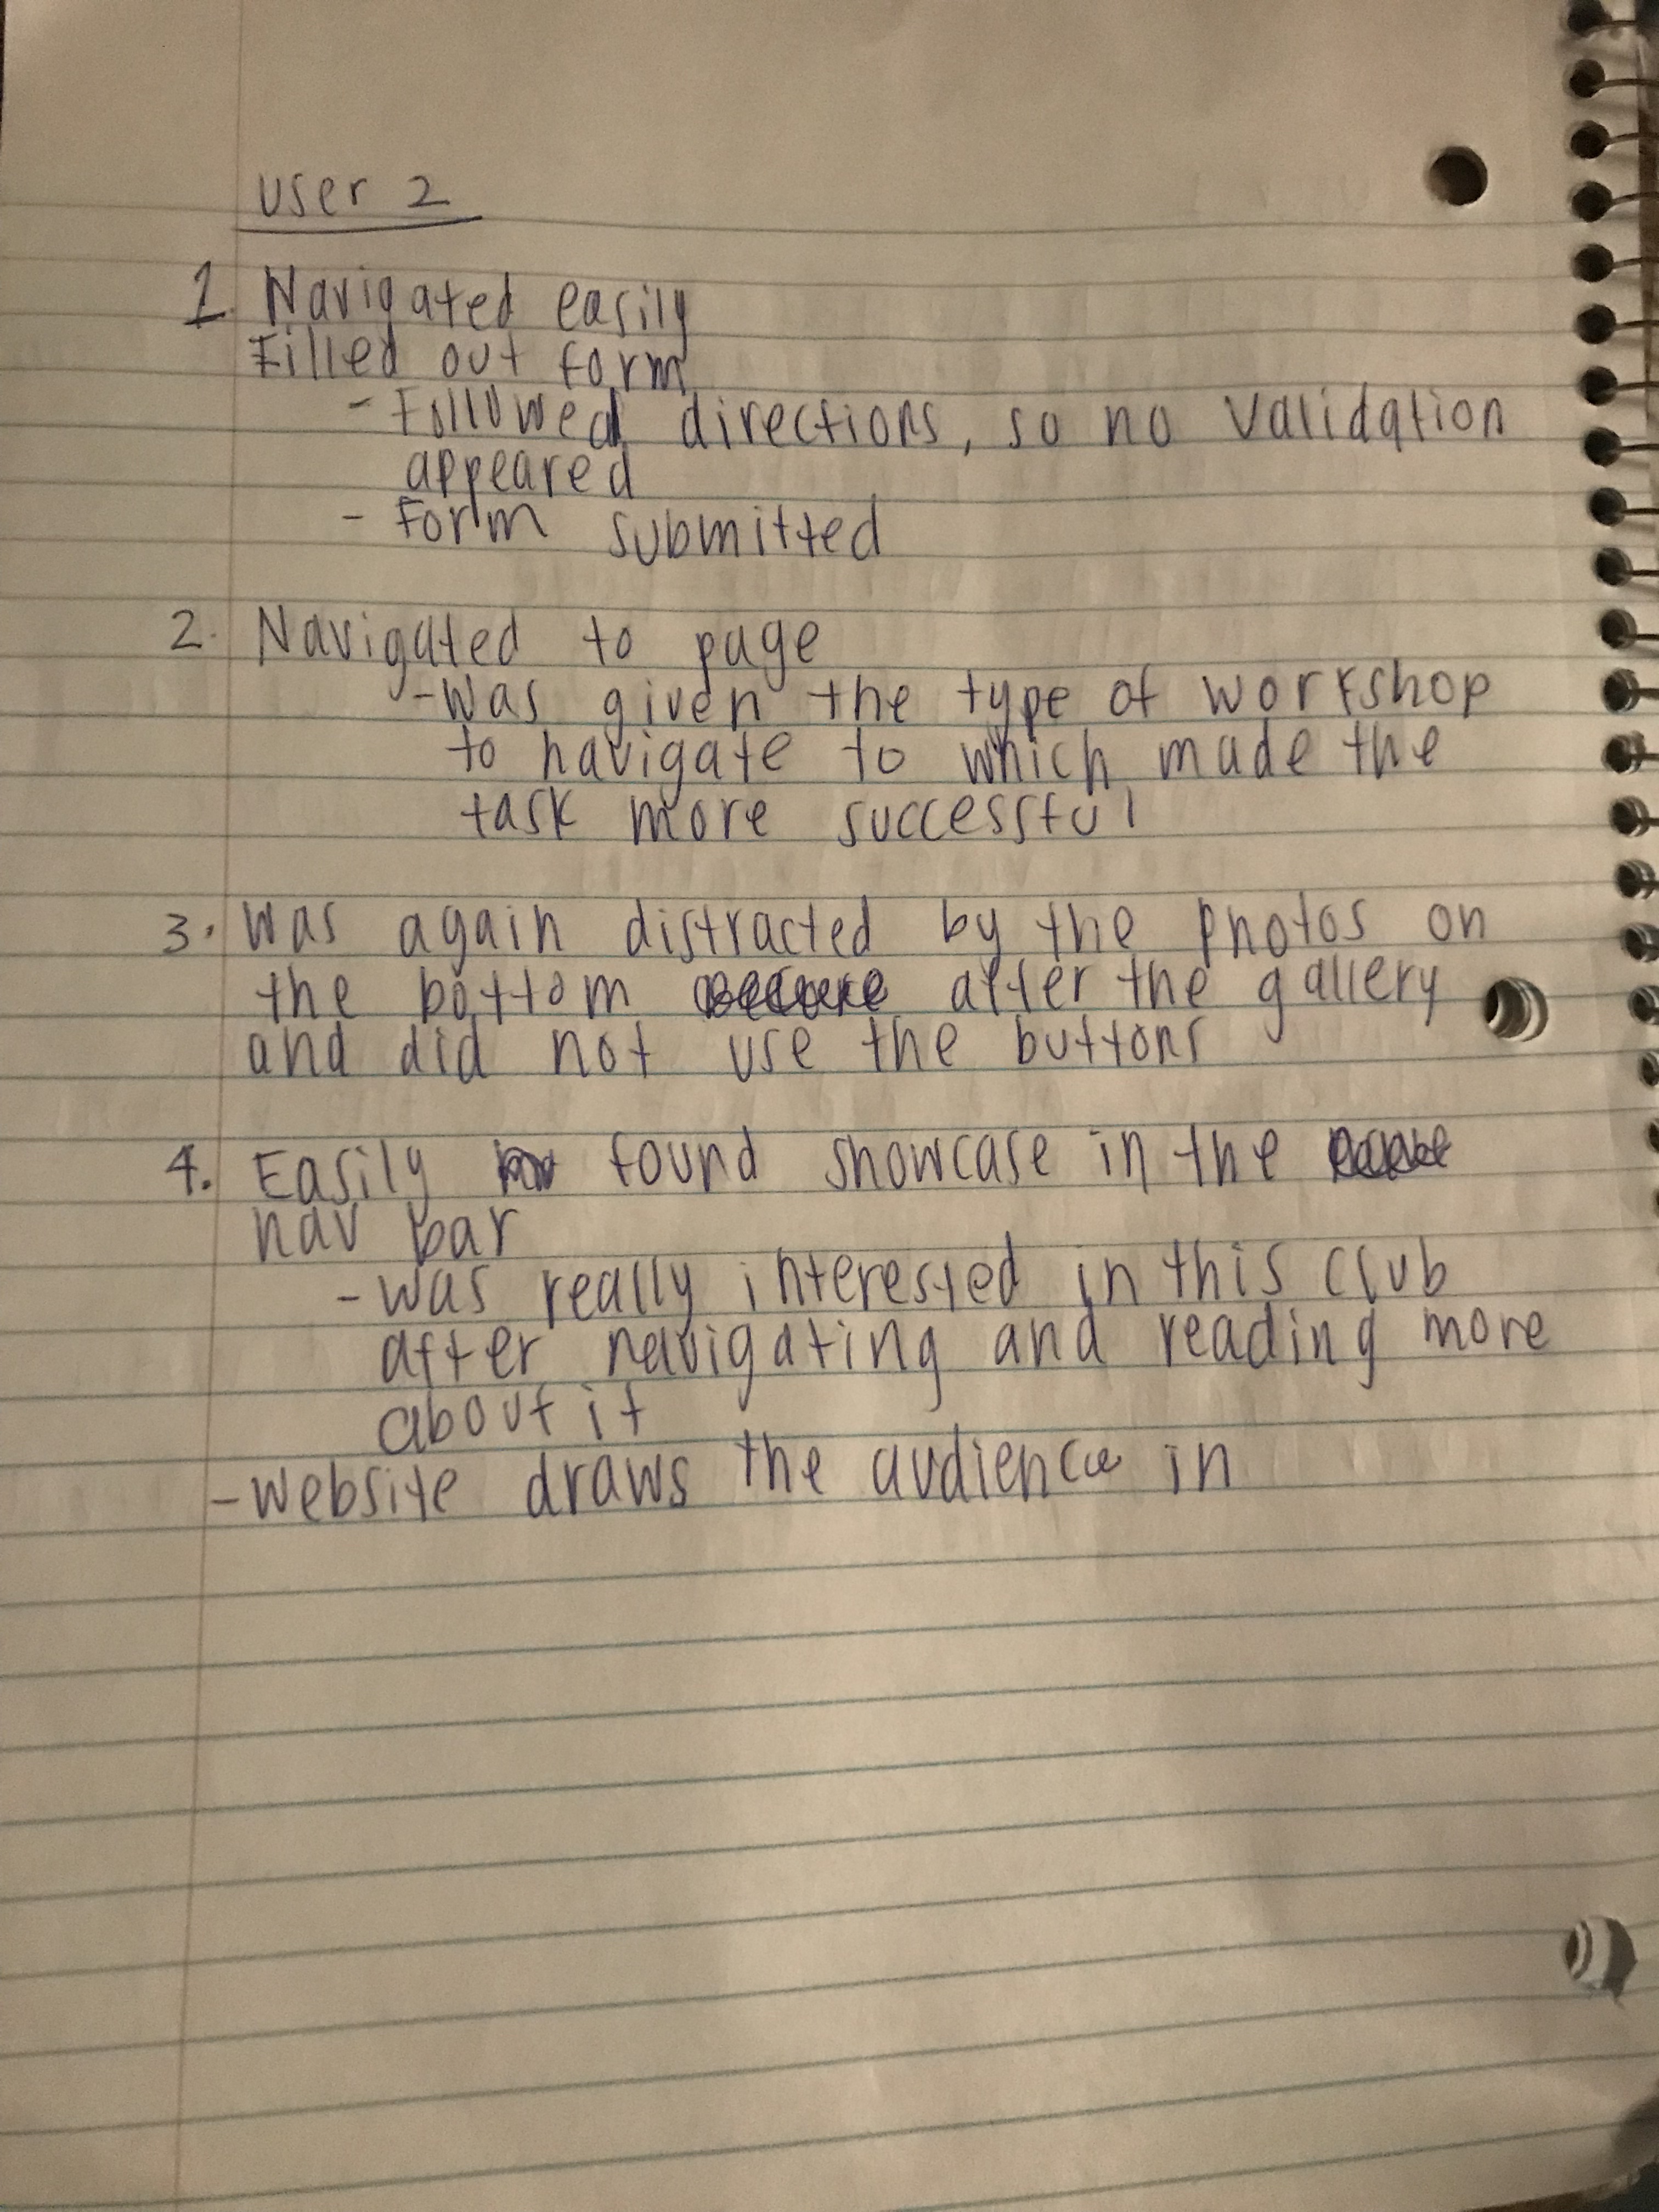 User 2
1. Navigated easily
Filled out form
- Followed directions, so no validation
appeared
- Form submitted
2. Navigated to page
- Was given the type of workshop
to navigate to which made the
task more successful
3. Was again distracted by the photos on
the bottom after the gallery
and did not use the buttons
4. Easily found showcase in the
nav bar
- was really interested in this club
after navigating and reading more
about it
- website draws the audience in